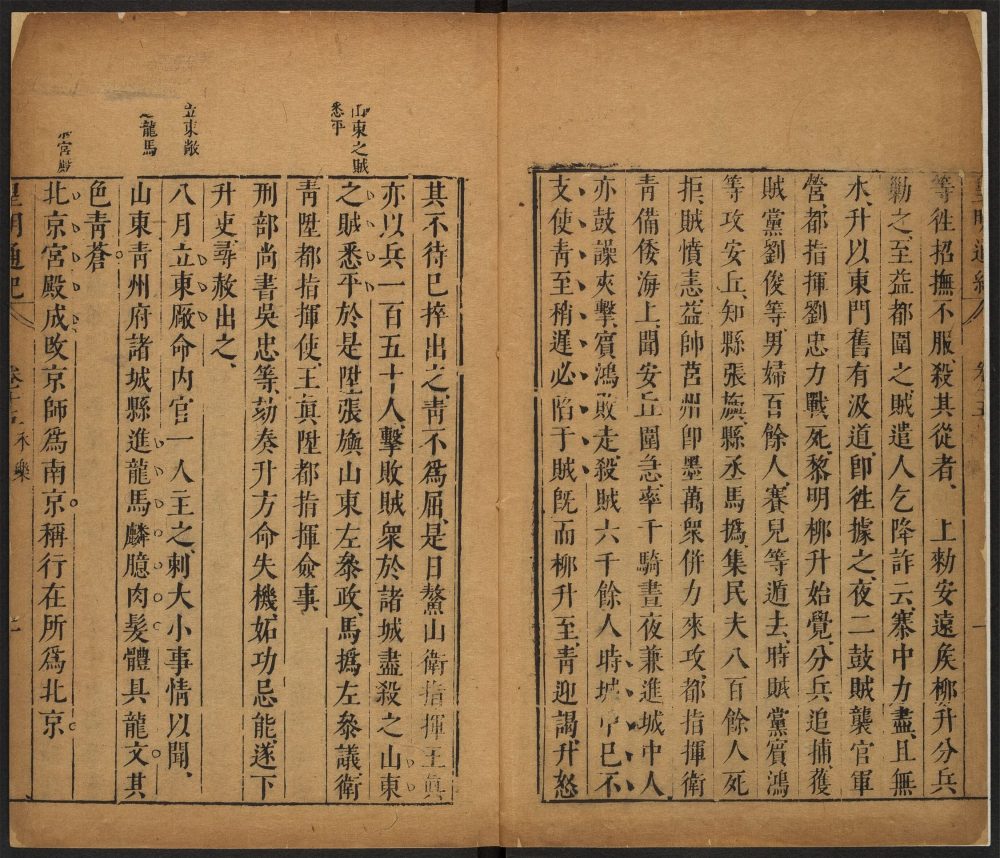 等徃招撫不服殺其從者、 上勑安遠侯柳升分兵
勦之至益都圍之賊遣人乞降詐云寨中力盡且無
水升以東門舊有汲道卽徃據之夜二鼓賊襲官軍
營都指揮劉忠力戰死黎明柳升始覺分兵追捕獲
賊黨劉俊等男婦百餘人賽兒等遁去時賊黨賓鴻
等攻安丘知縣張旟縣丞馬撝集民夫八百餘人死
拒賊憤恚益帥莒州卽墨萬衆併力來攻都指揮衛
靑備倭海上聞安丘圍急率千騎晝夜兼進城中人
亦鼓譟夾擊賓鴻敗走殺賊六千餘人時城中已不
支使靑至稍遲必陷于賊旣而柳升至靑迎謁升怒
山東之賊
悉平
立東廠
龍馬
宮殿
其不待己捽出之靑不爲屈是日鰲山衛指揮王眞
亦以兵一百五十人擊敗賊衆於諸城盡殺之山東
之賊悉平於是陞張旟山東左參政馬撝左參議衛
靑陞都指揮使王眞陞都指揮僉事
刑部尚書吳忠等劾奏升方命失機妬功忌能遂下
升吏尋赦出之、
八月立東厰命内官一人主之刺大小事情以聞、
山東靑州府諸城縣進龍馬麟臆肉髪體具龍文其
色靑蒼。
北京宮殿成改京師爲南京。稱行在所爲北京。
皇明通紀
永樂